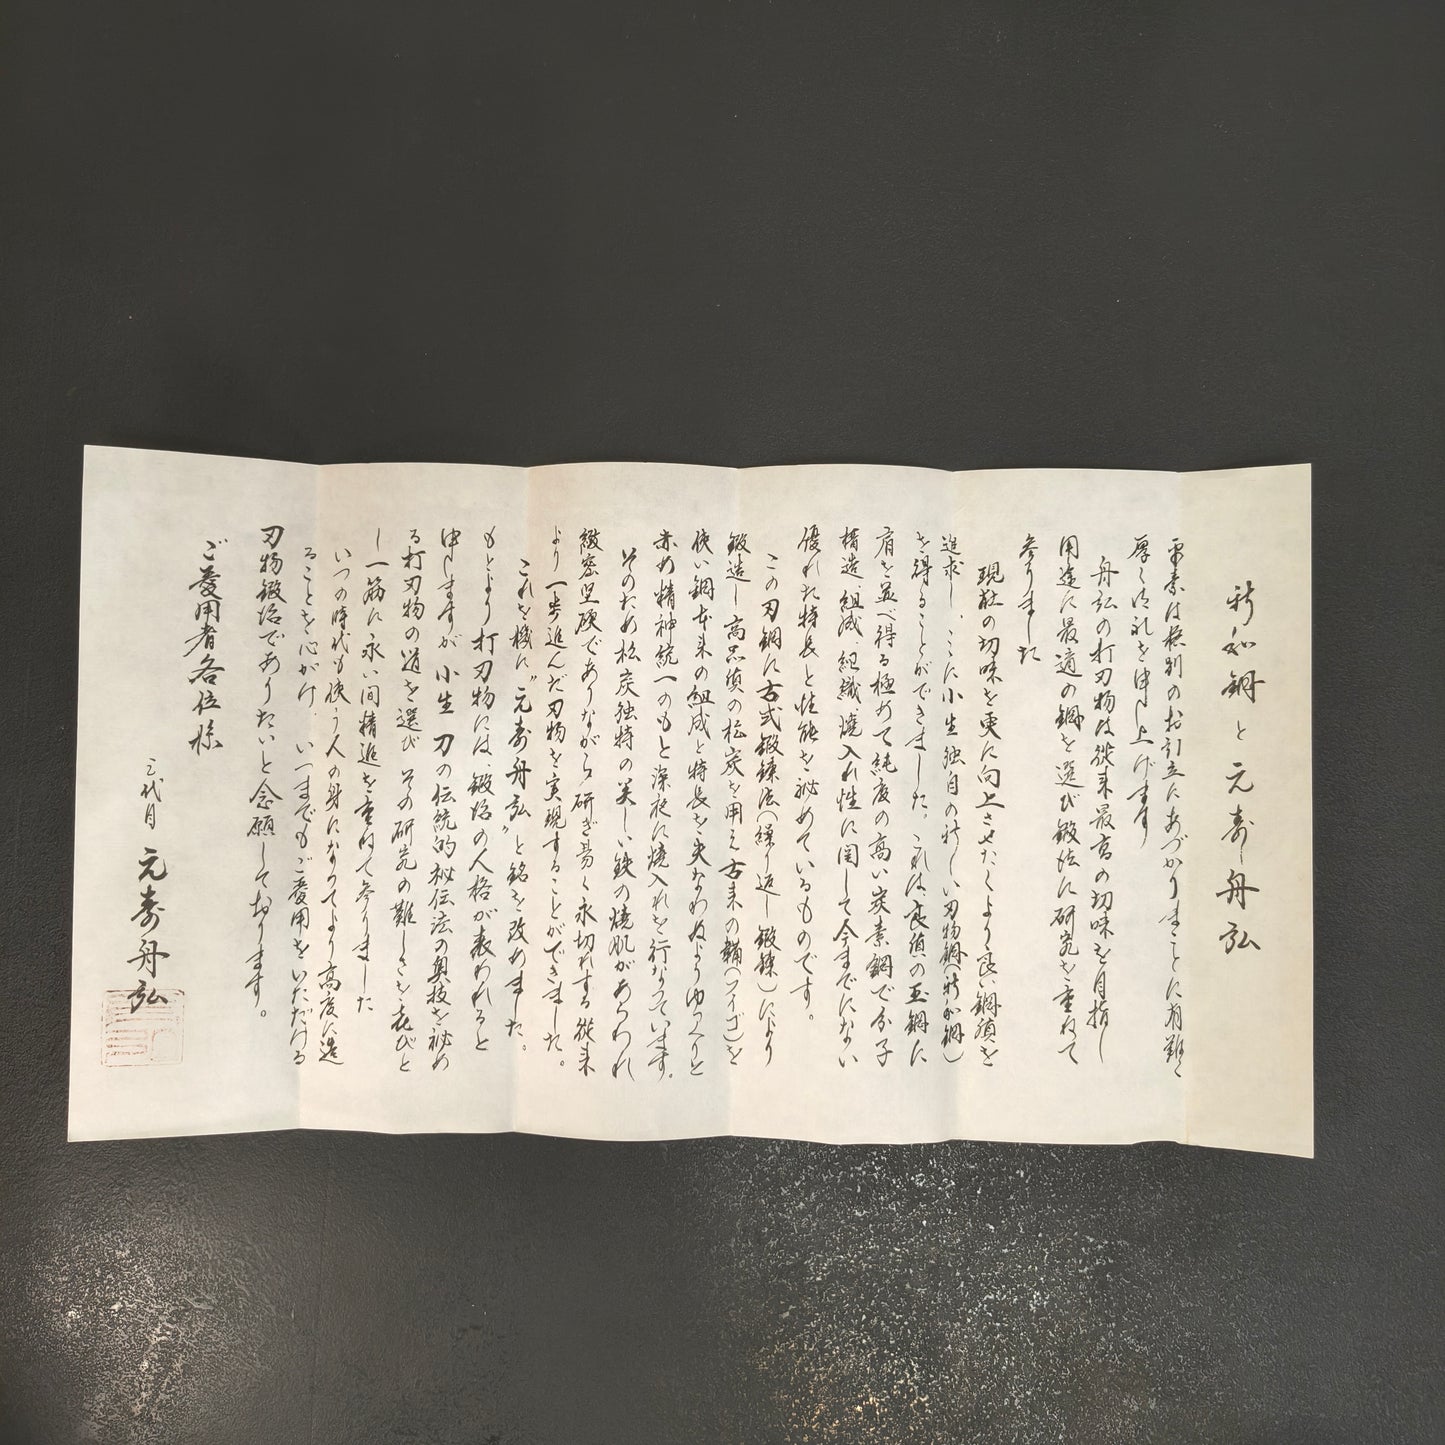 新和鋼と元壽舟弘
平素は格別のお引立にあづかりまことに有難く
厚く御礼を申し上げます
舟弘の打刃物は従来最高の切味を目指し
用途に最適の鋼を選び鍛法に研究を重ねて
参りました
現在の切味を更に向上させたくより良い鋼質を
追求し、ここに小生独自の新しい刃物鋼(新和鋼)
を得ることができました。これは良質の玉鋼に
肩を並べ得る極めて純度の高い炭素鋼で分子
構造、組成、組織、焼入れ性に関して今までにない
優れた特長と性能を秘めているものです。
この刃鋼に古式鍛錬法(繰り返し鍛錬)により
鍛造し高品質の松炭を用え古来の鞴(フイゴ)を
使い鋼本来の組成と特長を失なわぬようゆっくりと
赤め精神統一のもと深夜に焼入れを行なっています。
そのため松炭独特の美しい鉄の焼肌があらわれ
緻密堅硬でありながら研ぎ易く永切れする従来
より一歩進んだ刃物を実現することができました。
これを機に〝元壽舟弘〟と銘を改めました。
もとより打刃物には、鍛冶の人格が表われると
申しますが小生刀の伝統的秘伝法の奥技を秘め
る打刃物の道を選びその研究の難しさを喜びと
し一筋に永い間精進を重ねて参りました
いつの時代も使う人の身になってより高度に造
ることを心がけ、いつまでもご愛用をいただける
刃物鍛冶でありたいと念願しております。
ご愛用者各位様
三代目 元壽舟弘